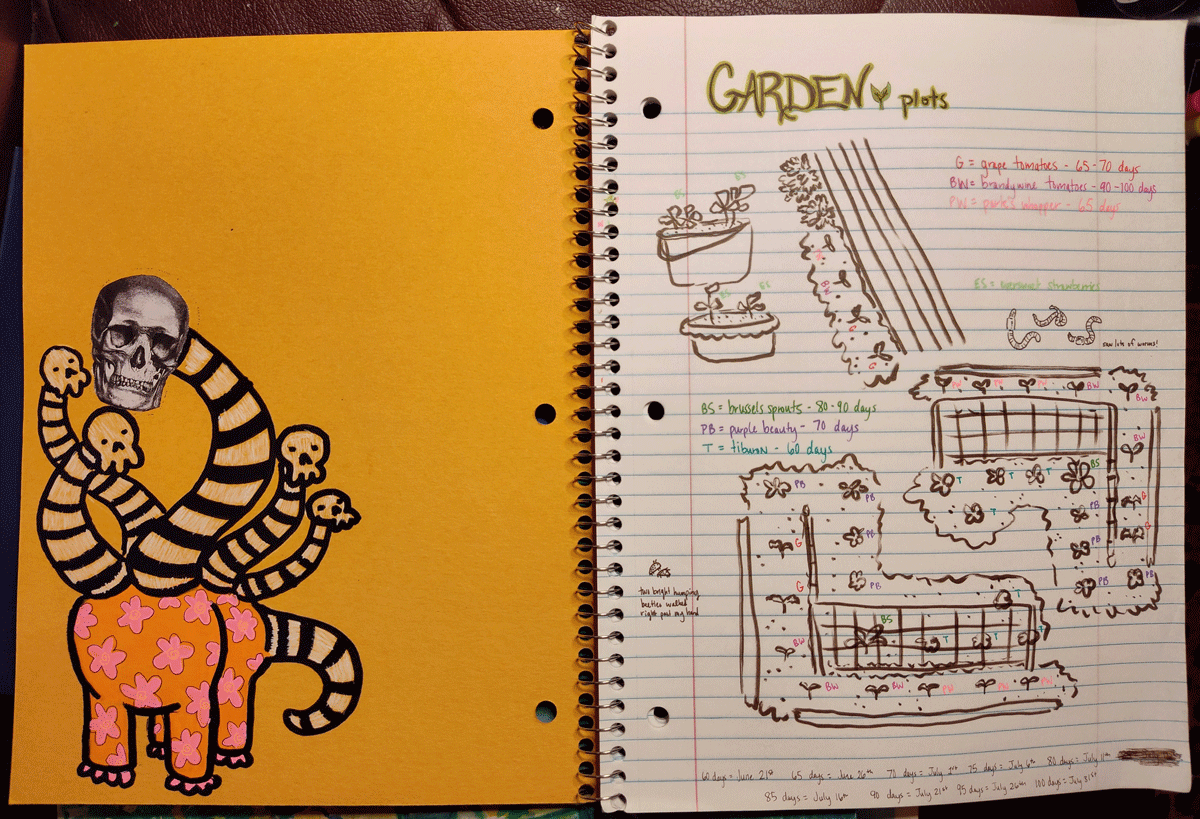 GARDEN plots
G = grape tomatoes - 65-70 days
BW = brandywine tomatoes - 90-100 days
PW = park's whopper - 65 days
BS
BS
BS
BS
G
BW
G
G
ES = eversweet strawberries
saw lots of worms!
BS = brussels sprouts - 80-90 days
PB = purple beauty - 70 days
T = tiburon - 60 days
PW PW PW BW BW
BW
T T T BS
G
T PB G
PB
PB PB
PB PB
G PB
G PB
T
two bright humping
beetles walked
right past my hand
BS T T T
BW
BW BW PW PW PW
60 days = June 21st 65 days = June 26th 70 days = July 1st 75 days = July 6th 80 days = July 11th
85 days = July 16th 90 days = July 21st 95 days = July 26th 100 days = July 31st